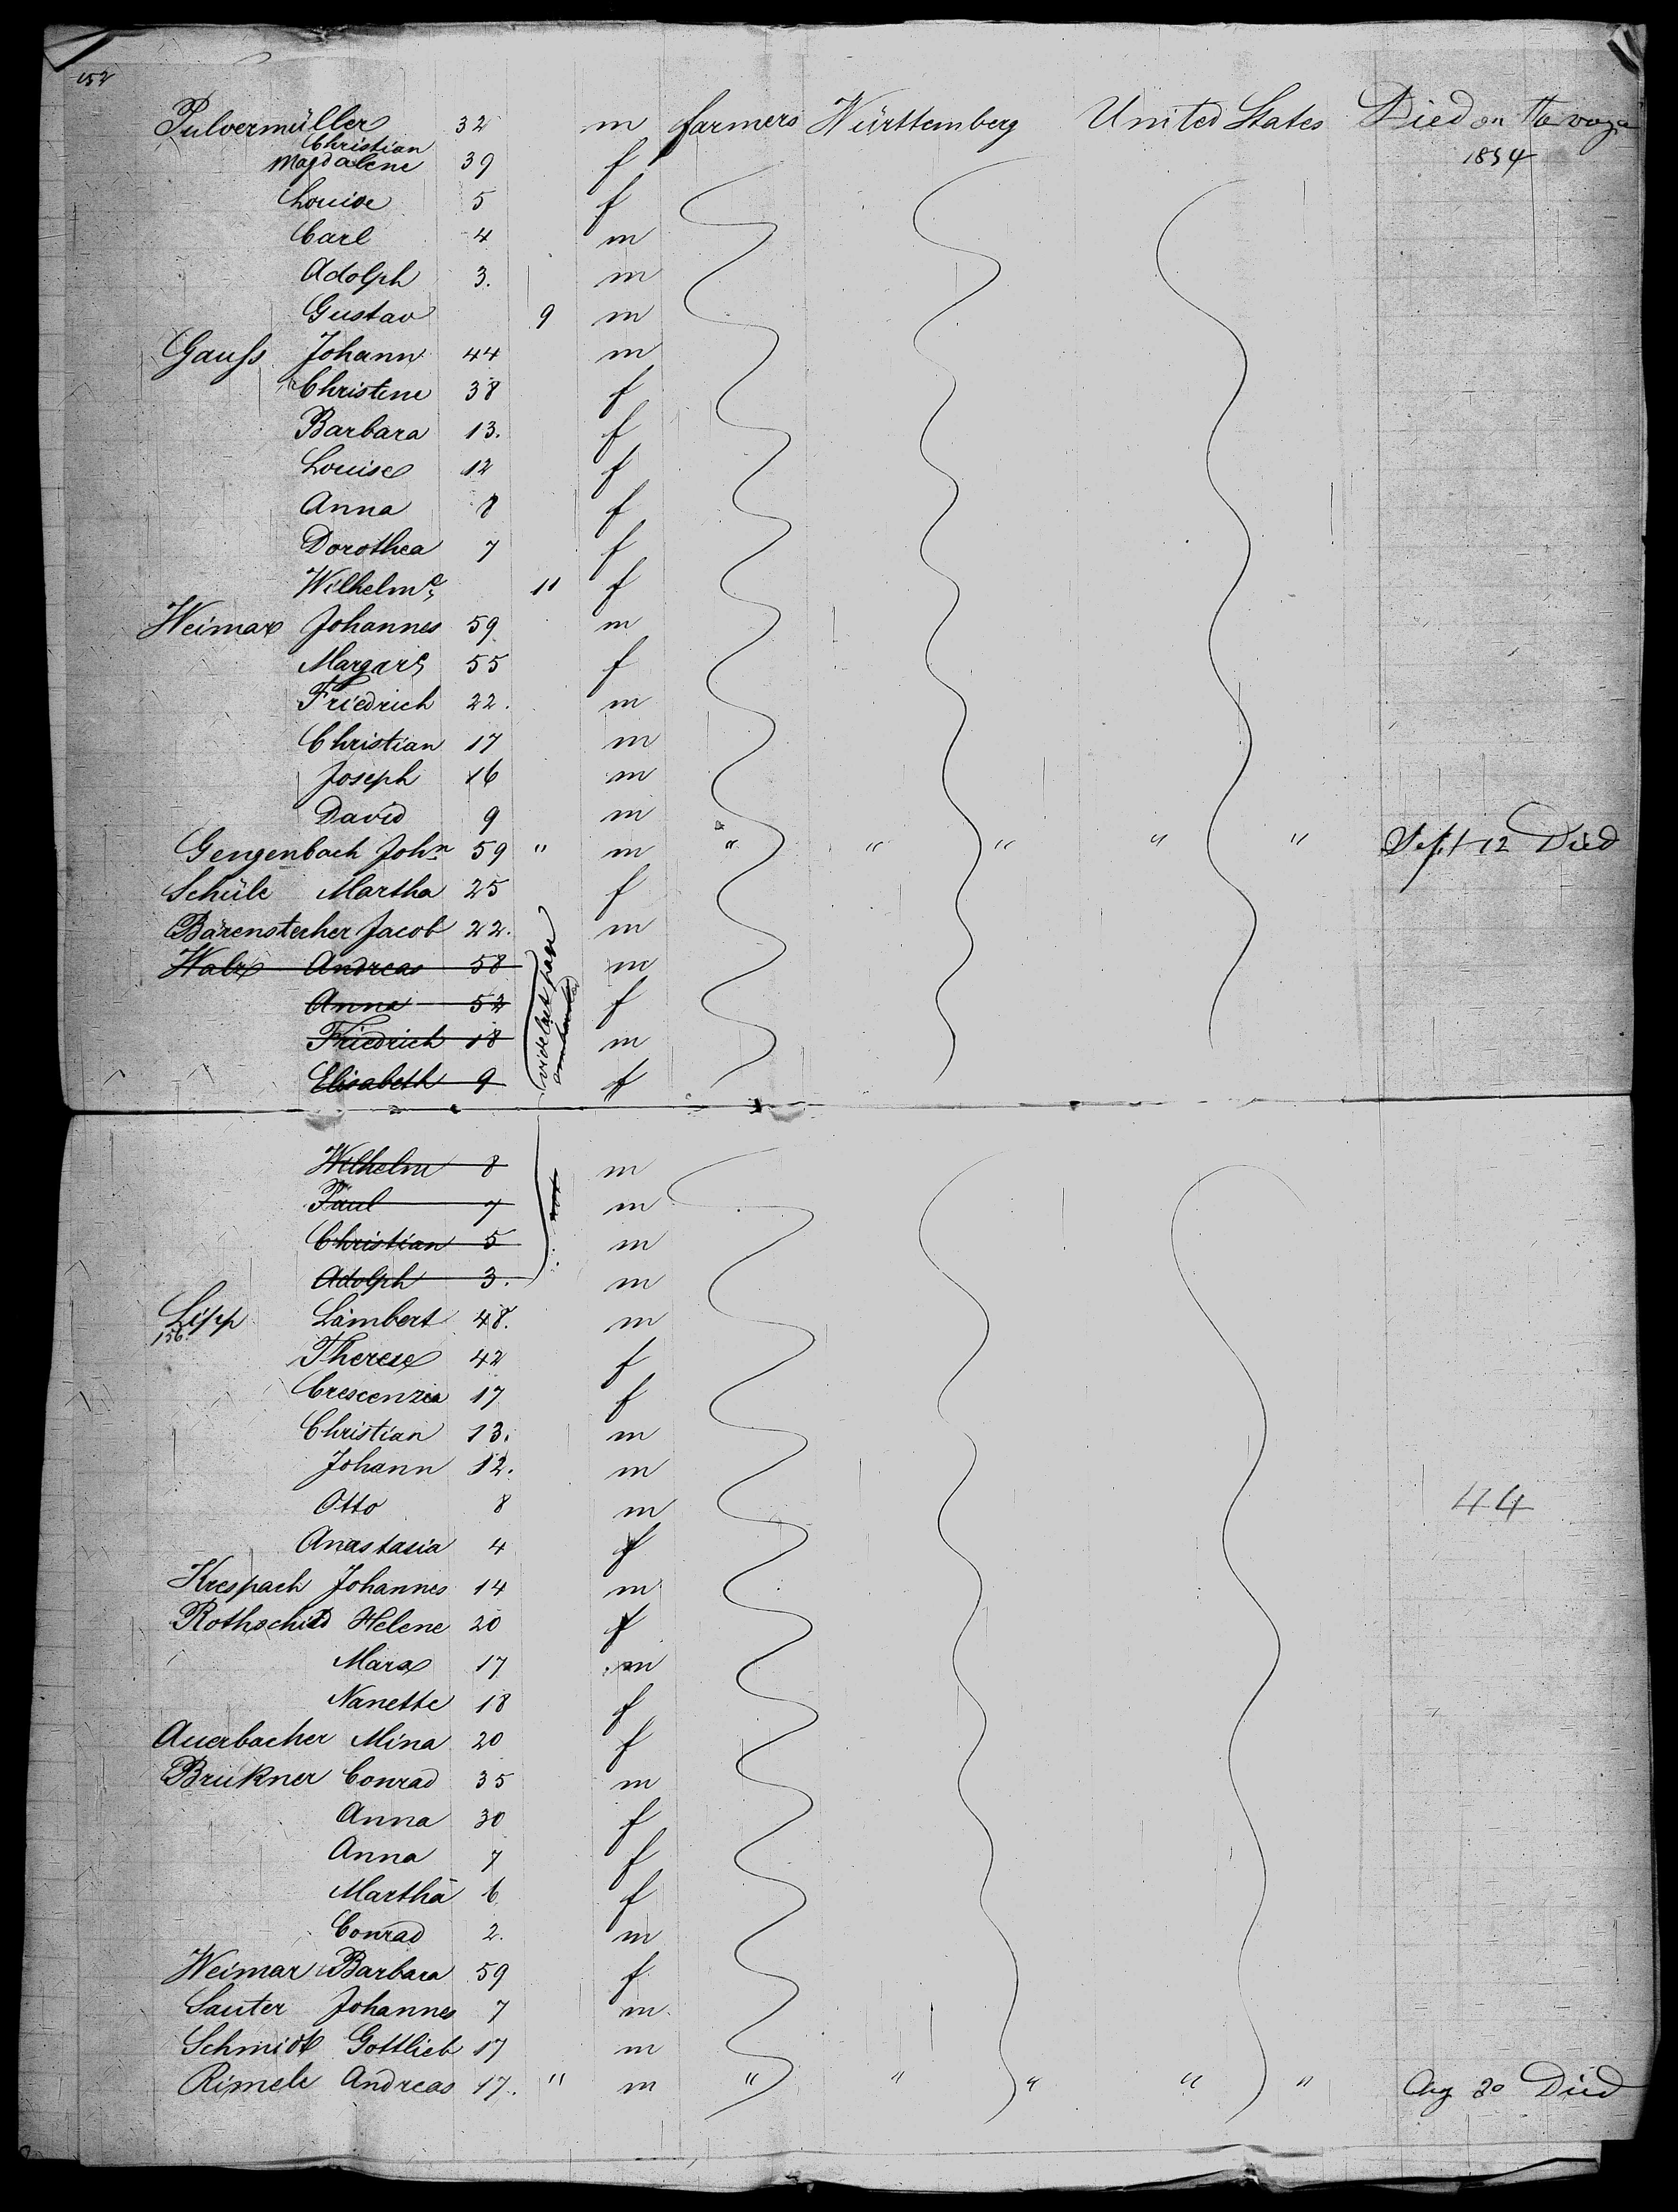 152
Pulvermüller 32 m farmers Württemberg United States Died on the voyage
Christian 1854
Magdalene 39 f
Louise 5 f
Carl 4 m
Adolph 3. m
Gustav 9 m
Gauſs Johann 44 m
Christine 38 f
Barbara 13. f
Louise 12 f
Anna 8 f
Dorothea 7 f
Wilhelm^e 11 f
Weimar Johannes 59 m
Margar^e 55 f
Friedrich 22. m
Christian 17 m
Joseph 16 m
David 9 m
Gengenbach Joh^n 59 " m " " " " " Sept 12 Died
Schüle Martha 25 f
Bärenstecher Jacob 22. m
Walz Andreas 58 m
Anna 52 f
Friedrich 18 m
Elisabeth 9 f
vide last page
Wilhelm 8 m
Paul 7 m
Christian 5 m
Adolph 3. m
Lipp Lambert 48. m
156.
Therese 42 f
Crescenzia 17 f
Christian 13. m
Johann 12. m
Otto 8 m
44
Anastasia 4 f
Krespach Johannes 14 m
Rothschild Helene 20 f
Marx 17 m
Nanette 18 f
Auerbacher Mina 20 f
Brukner Conrad 35 m
Anna 30 f
Anna 7 f
Martha 6 f
Conrad 2. m
Weimar Barbara 59 f
Sauter Johannes 7 m
Schmidt Gottlieb 17 m
Rimele Andreas 17. " m " " " " " Aug 30 Died